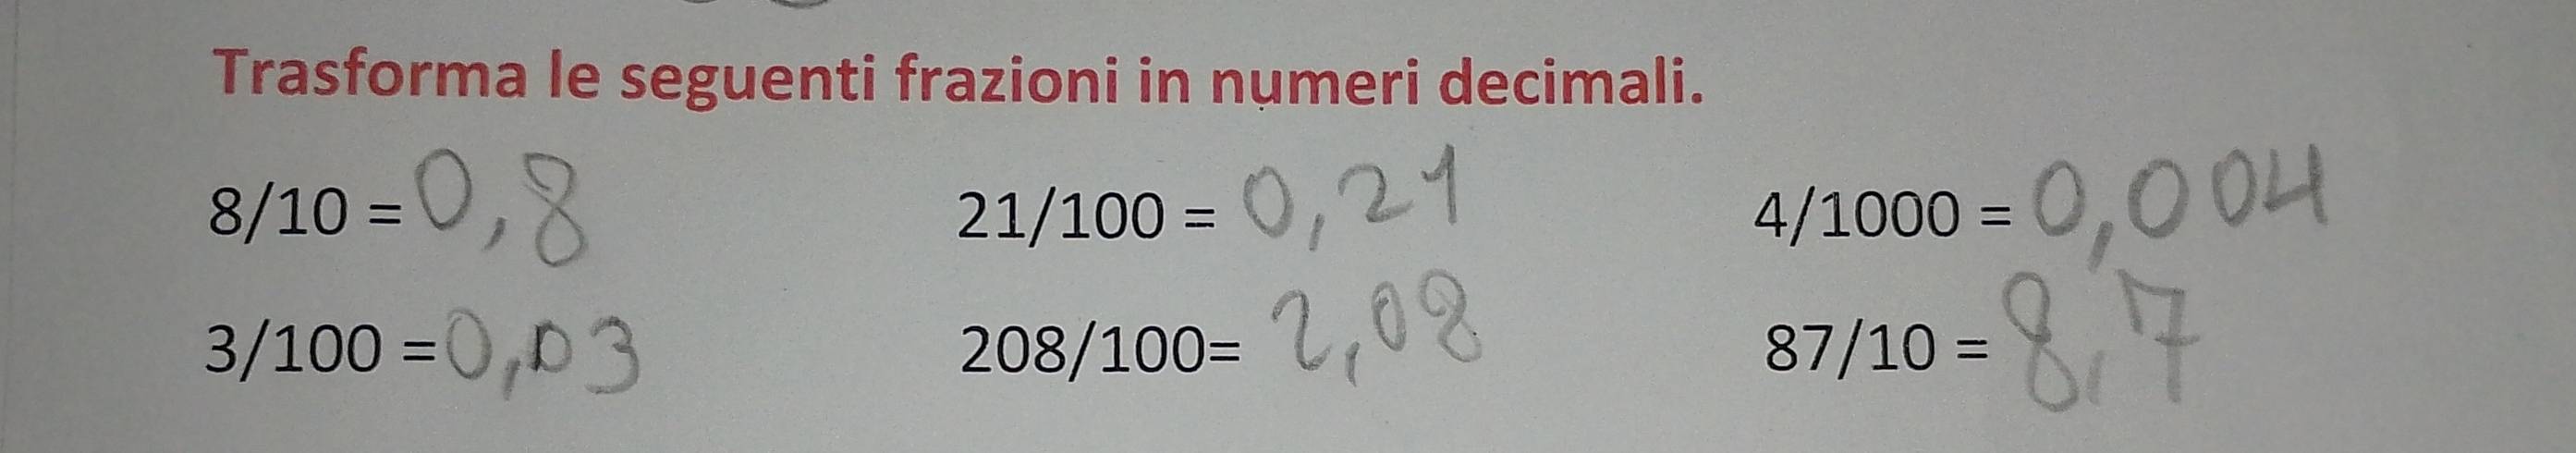 Trasforma le seguenti frazioni in numeri decimali.
8/10 = 0,8 21/100 = 0,21 4/1000 = 0,004
3/100 = 0,03 208/100= 2,08 87/10 = 8,7